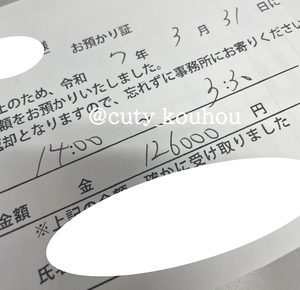 お預かり証
上のため、令和 7 年 3 月 31 日に
額をお預かりいたしました。
却となりますので、忘れずに事務所にお寄りください
@cuty_kouhou
14:00
3:30
金額 金 126000 円
※上記の金額、確かに受け取りました
氏名